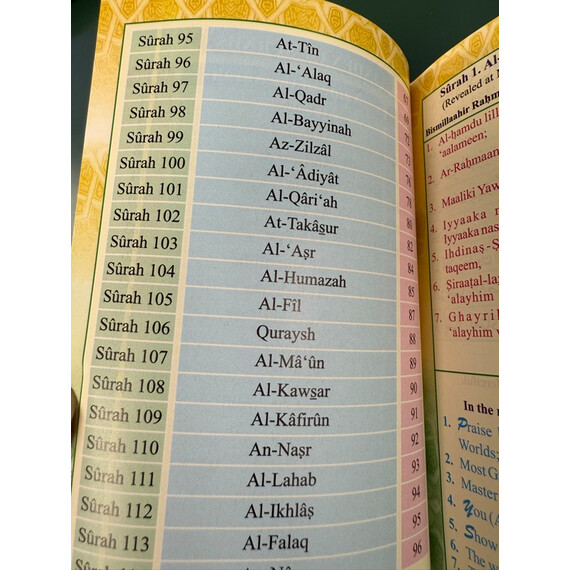 Sûrah 95 At-Tîn
Sûrah 96 Al-‘Alaq
Sûrah 97 Al-Qadr
Sûrah 98 Al-Bayyinah
Sûrah 99 Az-Zilzâl
Sûrah 100 Al-‘Âdiyât
Sûrah 101 Al-Qâri‘ah
Sûrah 102 At-Takâsur
Sûrah 103 Al-‘Aṣr
Sûrah 104 Al-Humazah
Sûrah 105 Al-Fîl
Sûrah 106 Quraysh
Sûrah 107 Al-Mâ‘ûn
Sûrah 108 Al-Kawsar
Sûrah 109 Al-Kâfirûn
Sûrah 110 An-Naṣr
Sûrah 111 Al-Lahab
Sûrah 112 Al-Ikhlâṣ
Sûrah 113 Al-Falaq
72
73
76
78
80
82
84
85
87
88
89
90
91
92
93
94
95
96
Sûrah 1. Al-
(Revealed at
Bismillaahir Raḥm
1. Al-ḥamdu lill
‘aalameen;
2. Ar-Raḥmaan
3. Maaliki Yaw
4. Iyyaaka n
Iyyaaka nas
5. Ihdinaṣ-Ṣ
taqeem,
6. Ṣiraaṭal-la
‘alayhim
7. Ghayril
‘alayhim
In the
1. Praise
Worlds;
2. Most G
3. Master
4. You (A
5. Show
The